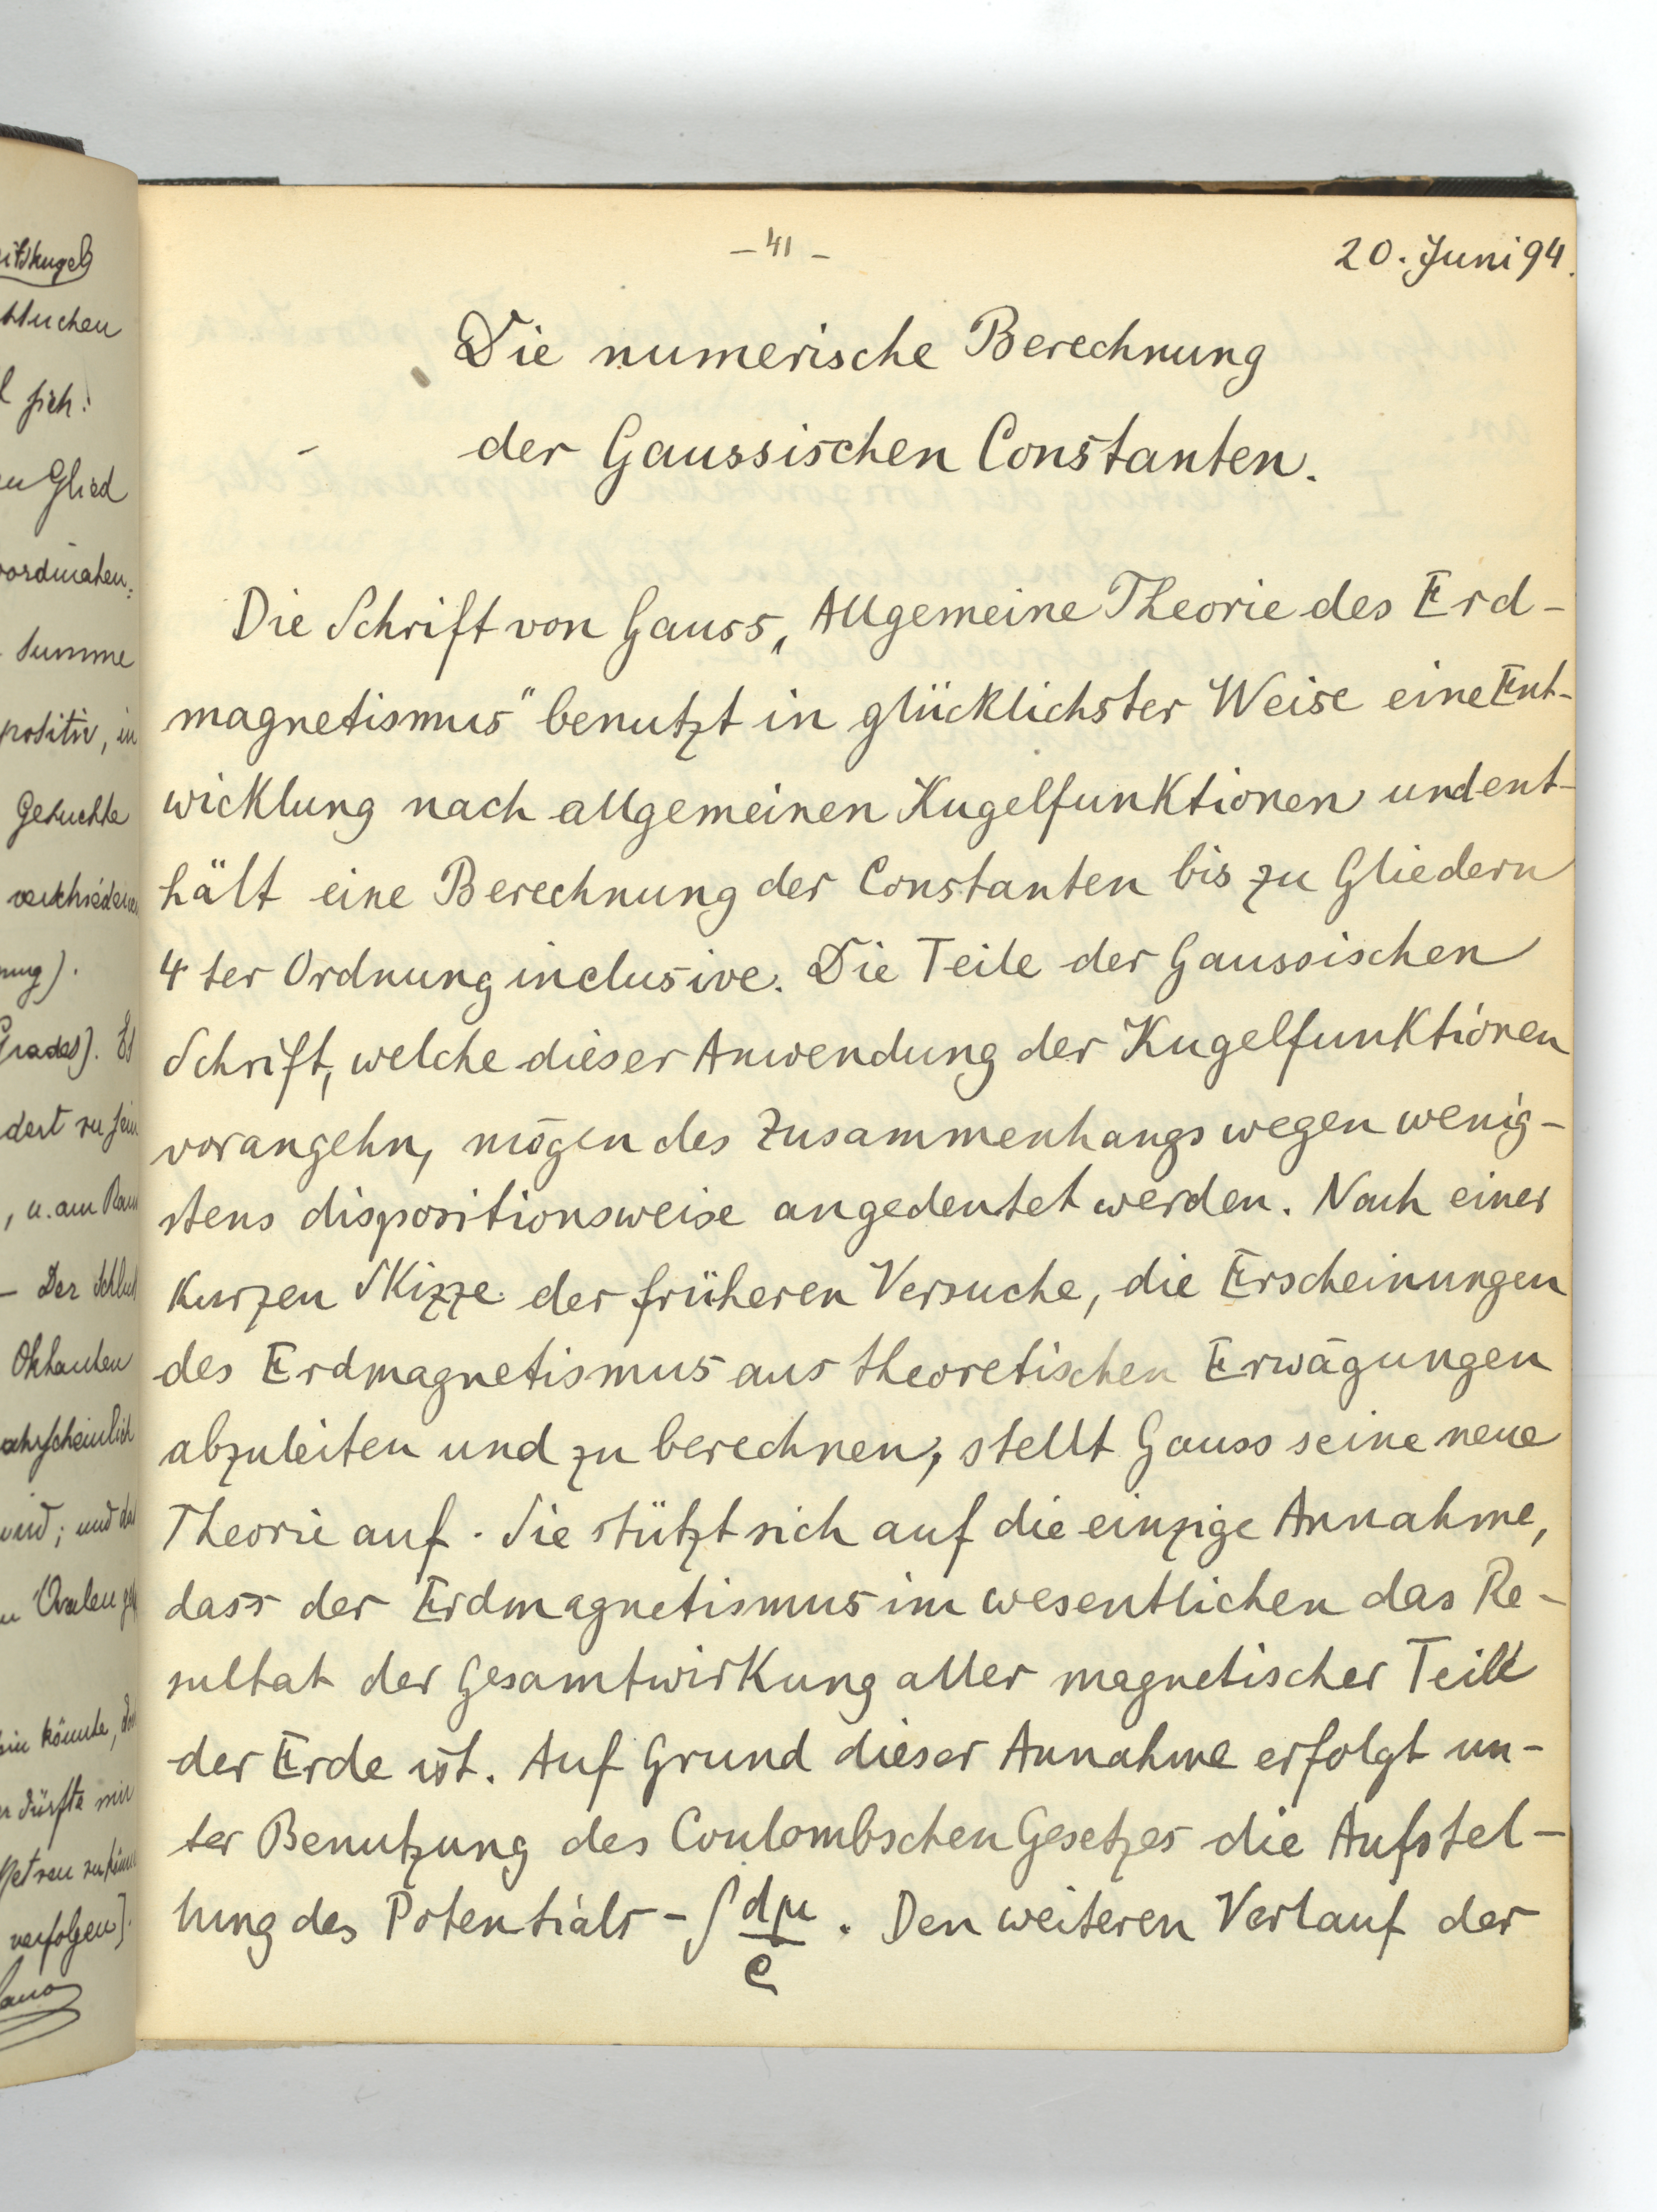 itskugel
suchen
sich.
Glied
oordinaten:
Summe
positiv, in
gesuchte
verschiedenen
nung).
Grades). Es
dert zu sein
, u. am Rand
– Der
Oktanten
wahrscheinlich
wird; und das
Ovalen
könnte,
dürfte mir
verfolgen].
– 41 –
20. Juni 94.
Die numerische Berechnung
der Gaussischen Constanten.
Die Schrift von Gauss „Allgemeine Theorie des Erd-
magnetismus“ benutzt in glücklichster Weise eine Ent-
wicklung nach allgemeinen Kugelfunktionen und ent-
hält eine Berechnung der Constanten bis zu Gliedern
4 ter Ordnung inclusive. Die Teile der Gaussischen
Schrift, welche dieser Anwendung der Kugelfunktionen
vorangehn, mögen des Zusammenhangs wegen wenig-
stens dispositionsweise angedeutet werden. Nach einer
kurzen Skizze der früheren Versuche, die Erscheinungen
des Erdmagnetismus aus theoretischen Erwägungen
abzuleiten und zu berechnen, stellt Gauss seine neue
Theorie auf. Sie stützt sich auf die einzige Annahme,
dass der Erdmagnetismus im wesentlichen das Re-
sultat der Gesamtwirkung aller magnetischer Teile
der Erde ist. Auf Grund dieser Annahme erfolgt un-
ter Benutzung des Coulombschen Gesetzes die Aufstel-
lung des Potentials – ∫ dμ/ϱ . Den weiteren Verlauf der